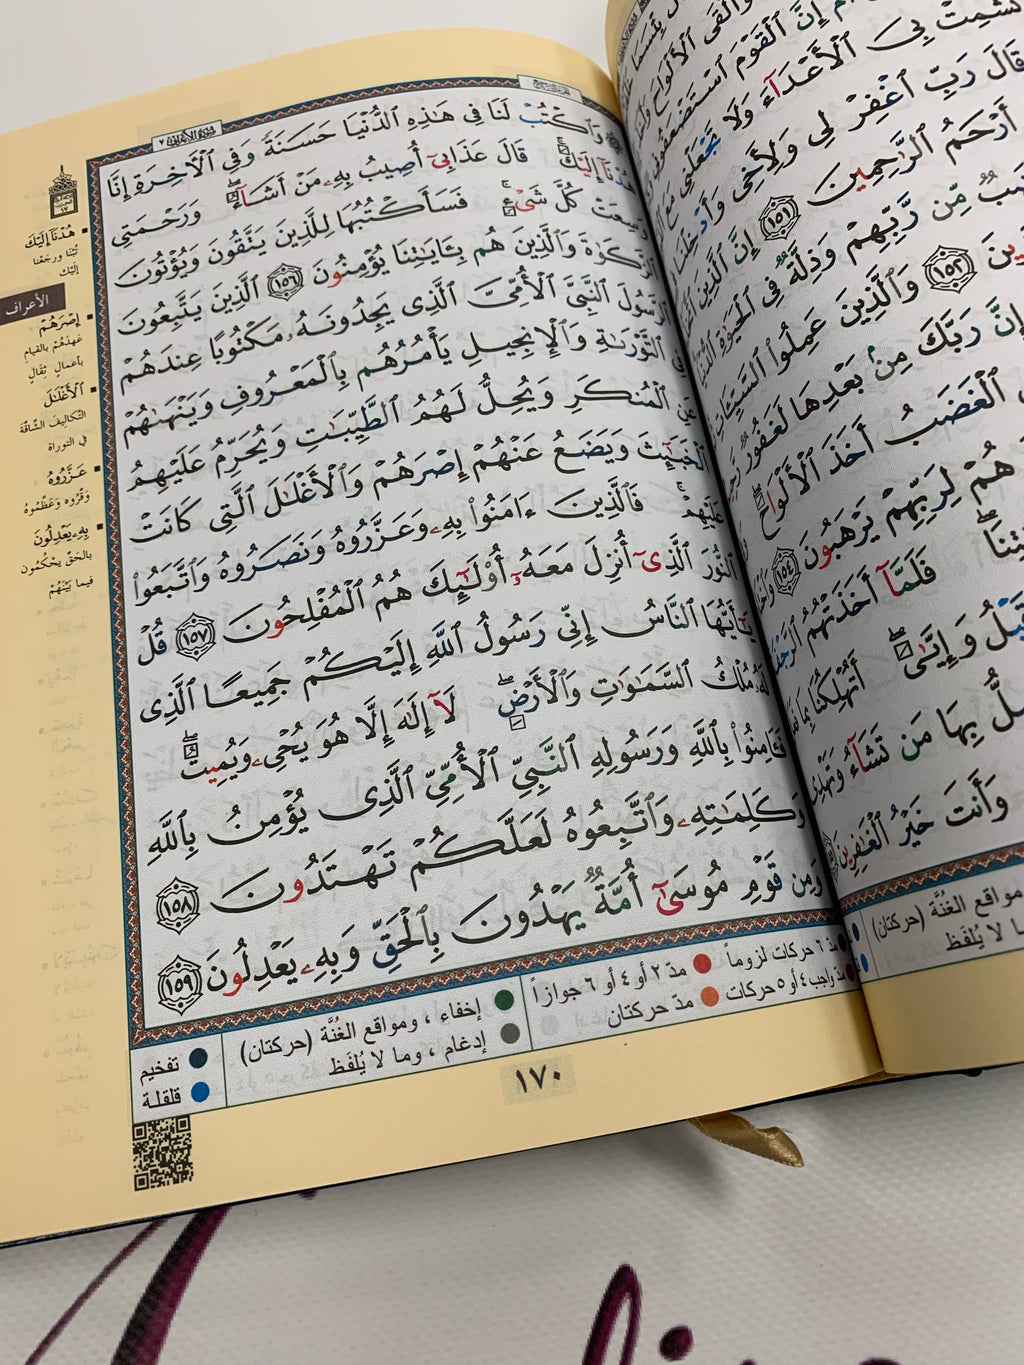 لَ بِئْسَمَا
وَأَلْقَى ٱلْأَلْوَاحَ وَأَخَذَ
إِنَّ ٱلْقَوْمَ ٱسْتَضْعَفُونِى
تُشْمِتْ بِىَ ٱلْأَعْدَآءَ وَلَا تَجْعَلْنِى مَعَ
قَالَ رَبِّ ٱغْفِرْ لِى وَلِأَخِى وَأَدْخِلْنَا
أَرْحَمُ ٱلرَّٰحِمِينَ ١٥١ إِنَّ ٱلَّذِينَ
مِّن رَّبِّهِمْ وَذِلَّةٌ فِى ٱلْحَيَوٰةِ ٱلدُّنْيَا
ينَ ١٥٢ وَٱلَّذِينَ عَمِلُوا۟ ٱلسَّيِّـَٔاتِ
إِنَّ رَبَّكَ مِنۢ بَعْدِهَا لَغَفُورٌ رَّحِيمٌ
ٱلْغَضَبُ أَخَذَ ٱلْأَلْوَاحَ
هُمْ لِرَبِّهِمْ يَرْهَبُونَ ١٥٤
فَلَمَّآ أَخَذَتْهُمُ ٱلرَّجْفَةُ
قَبْلُ وَإِيَّـٰىَ أَتُهْلِكُنَا بِمَا فَعَلَ
تُضِلُّ بِهَا مَن تَشَآءُ وَتَهْدِى
وَأَنتَ خَيْرُ ٱلْغَـٰفِرِينَ
مواقع الغُنَّة (حركتان)
ما لا يُلفَظ
سورة الأعراف ٧
الجزء التاسع
وَٱكْتُبْ لَنَا فِى هَـٰذِهِ ٱلدُّنْيَا حَسَنَةً وَفِى ٱلْـَٔاخِرَةِ إِنَّا
هُدْنَآ إِلَيْكَ ۚ قَالَ عَذَابِىٓ أُصِيبُ بِهِۦ مَنْ أَشَآءُ ۖ وَرَحْمَتِى
وَسِعَتْ كُلَّ شَىْءٍ ۚ فَسَأَكْتُبُهَا لِلَّذِينَ يَتَّقُونَ وَيُؤْتُونَ
ٱلزَّكَوٰةَ وَٱلَّذِينَ هُم بِـَٔايَـٰتِنَا يُؤْمِنُونَ ١٥٦ ٱلَّذِينَ يَتَّبِعُونَ
ٱلرَّسُولَ ٱلنَّبِىَّ ٱلْأُمِّىَّ ٱلَّذِى يَجِدُونَهُۥ مَكْتُوبًا عِندَهُمْ
فِى ٱلتَّوْرَىٰةِ وَٱلْإِنجِيلِ يَأْمُرُهُم بِٱلْمَعْرُوفِ وَيَنْهَىٰهُمْ
عَنِ ٱلْمُنكَرِ وَيُحِلُّ لَهُمُ ٱلطَّيِّبَـٰتِ وَيُحَرِّمُ عَلَيْهِمُ
ٱلْخَبَـٰٓئِثَ وَيَضَعُ عَنْهُمْ إِصْرَهُمْ وَٱلْأَغْلَـٰلَ ٱلَّتِى كَانَتْ
عَلَيْهِمْ ۚ فَٱلَّذِينَ ءَامَنُوا۟ بِهِۦ وَعَزَّرُوهُ وَنَصَرُوهُ وَٱتَّبَعُوا۟
ٱلنُّورَ ٱلَّذِىٓ أُنزِلَ مَعَهُۥٓ ۙ أُو۟لَـٰٓئِكَ هُمُ ٱلْمُفْلِحُونَ ١٥٧ قُلْ
يَـٰٓأَيُّهَا ٱلنَّاسُ إِنِّى رَسُولُ ٱللَّهِ إِلَيْكُمْ جَمِيعًا ٱلَّذِى
لَهُۥ مُلْكُ ٱلسَّمَـٰوَٰتِ وَٱلْأَرْضِ ۖ لَآ إِلَـٰهَ إِلَّا هُوَ يُحْىِۦ وَيُمِيتُ ۖ
فَـَٔامِنُوا۟ بِٱللَّهِ وَرَسُولِهِ ٱلنَّبِىِّ ٱلْأُمِّىِّ ٱلَّذِى يُؤْمِنُ بِٱللَّهِ
وَكَلِمَـٰتِهِۦ وَٱتَّبِعُوهُ لَعَلَّكُمْ تَهْتَدُونَ ١٥٨
وَمِن قَوْمِ مُوسَىٰٓ أُمَّةٌ يَهْدُونَ بِٱلْحَقِّ وَبِهِۦ يَعْدِلُونَ ١٥٩
هُدْنَآ إِلَيْكَ
تُبْنا ورجَعْنا
إليْك
الأعراف
إِصْرَهُمْ
عَهدَهُمْ بالقيامِ
بأعمالٍ ثِقَالٍ
ٱلْأَغْلَـٰلَ
التَّكاليفَ الشَّاقَّةَ
في التوراة
عَزَّرُوهُ
وَقَّرُوه وَعَظَّمُوهُ
بِهِۦ يَعْدِلُونَ
بالحَقِّ يحْكُمُون
فيما بَيْنَهُمْ
مدّ ٦ حركات لزوماً
مدّ ٢ أو ٤ أو ٦ جوازاً
مدّ واجب ٤ أو ٥ حركات
مدّ حركتان
إخفاء ، ومواقع الغُنَّة (حركتان)
إدغام ، وما لا يُلفَظ
تفخيم
قلقلة
١٧٠